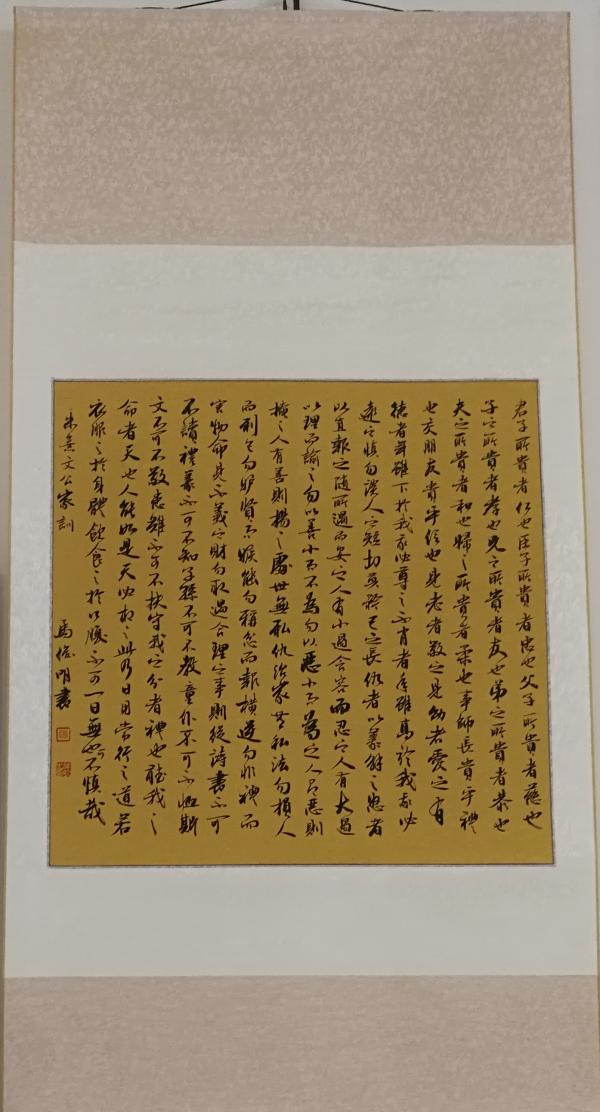 君子所貴者仁也臣子所貴者忠也父子所貴者慈也
子之所貴者孝也兄之所貴者友也弟之所貴者恭也
夫之所貴者和也婦之所貴者柔也事師長貴乎禮
也交朋友貴乎信也見老者敬之見幼者愛之有
德者年雖下於我我必尊之不肖者年雖高於我我必
遠之慎勿談人之短切莫矜己之長仇者以義解之怨者
以直報之隨所遇而安之人有小過含容而忍之人有大過
以理而諭之勿以善小而不為勿以惡小而為之人有惡則
掩之人有善則揚之處世無私仇治家無私法勿損人
而利己勿妒賢而嫉能勿稱忿而報橫逆勿非禮而
害物命見不義之財勿取遇合理之事則從詩書不可
不讀禮義不可不知子孫不可不教童仆不可不恤斯
文不可不敬患難不可不扶守我之分者禮也聽我之
命者天也人能如是天必相之此乃日用常行之道若
衣服之於身體飲食之於口腹不可一日無也可不慎哉
朱熹文公家訓
馬俊明書